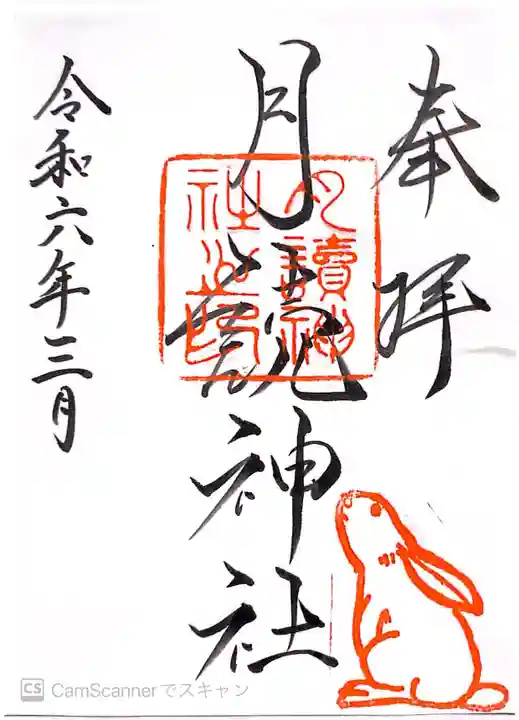 奉拝
月読神社
月讀神
社之印
令和六年三月
CS CamScannerでスキャン